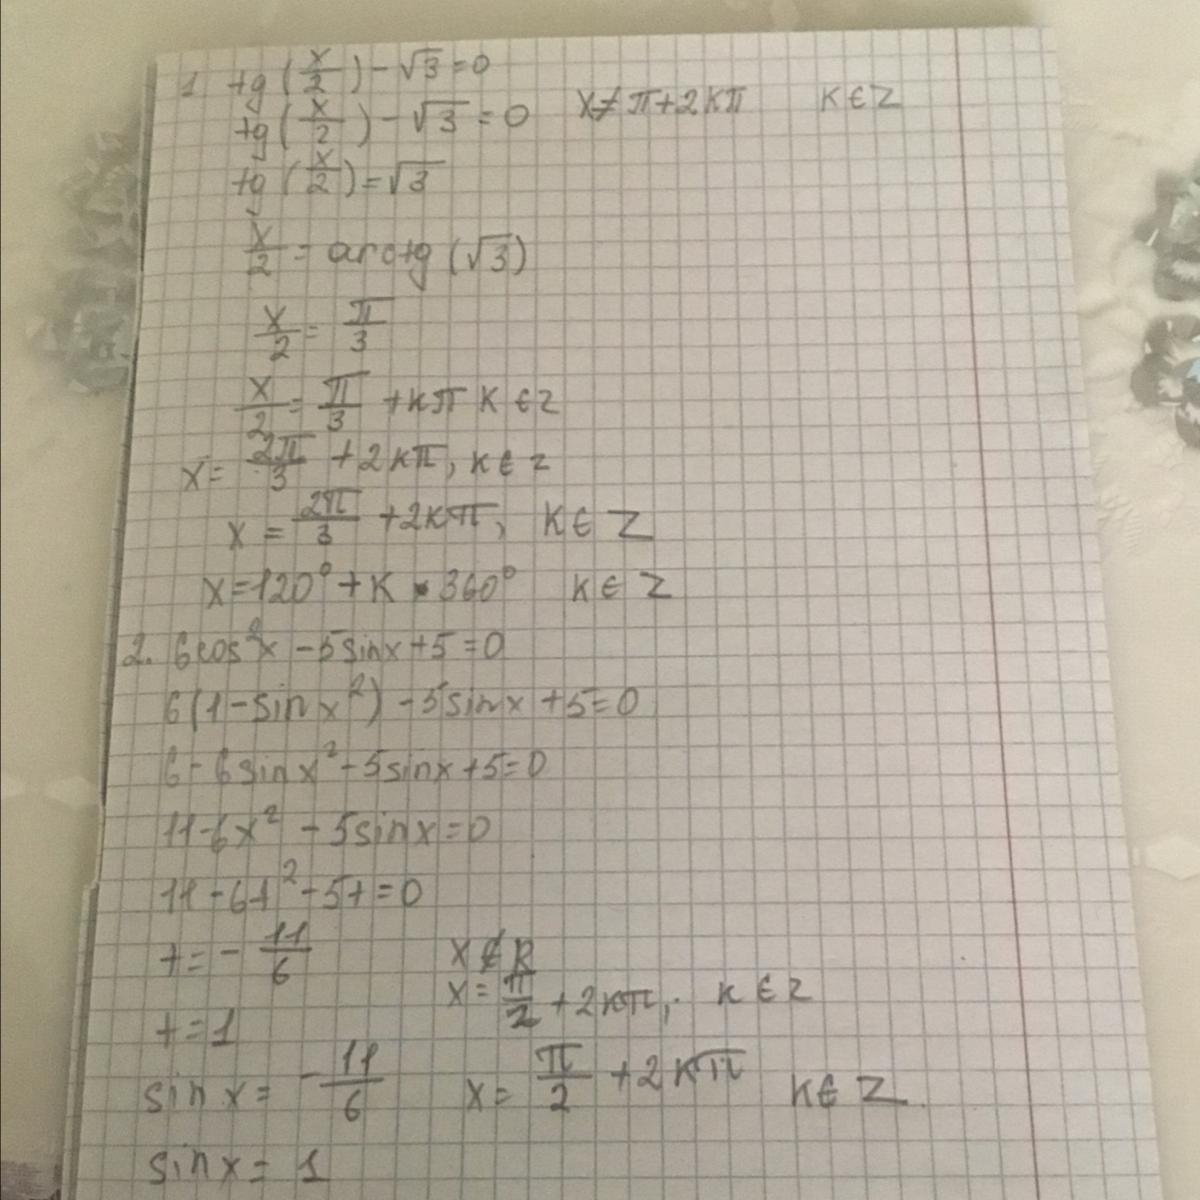 1 tg(x/2) - √3 = 0
tg(x/2) - √3 = 0 x ≠ π + 2kπ k ∈ Z
tg(x/2) = √3
x/2 = arctg(√3)
x/2 = π/3
x/2 = π/3 + kπ k ∈ z
x = 2π/3 + 2kπ, k ∈ z
x = 2π/3 + 2kπ, k ∈ Z
x = 120° + k · 360° k ∈ Z
2. 6cos²x - 5sinx + 5 = 0
6(1 - sin x²) - 5sinx + 5 = 0
6 - 6sin x² - 5sinx + 5 = 0
11 - 6x² - 5sinx = 0
11 - 6t² - 5t = 0
t = - 11/6 x ∉ R
t = 1 x = π/2 + 2kπ, k ∈ z
sin x = - 11/6 x = π/2 + 2kπ k ∈ Z.
sin x = 1